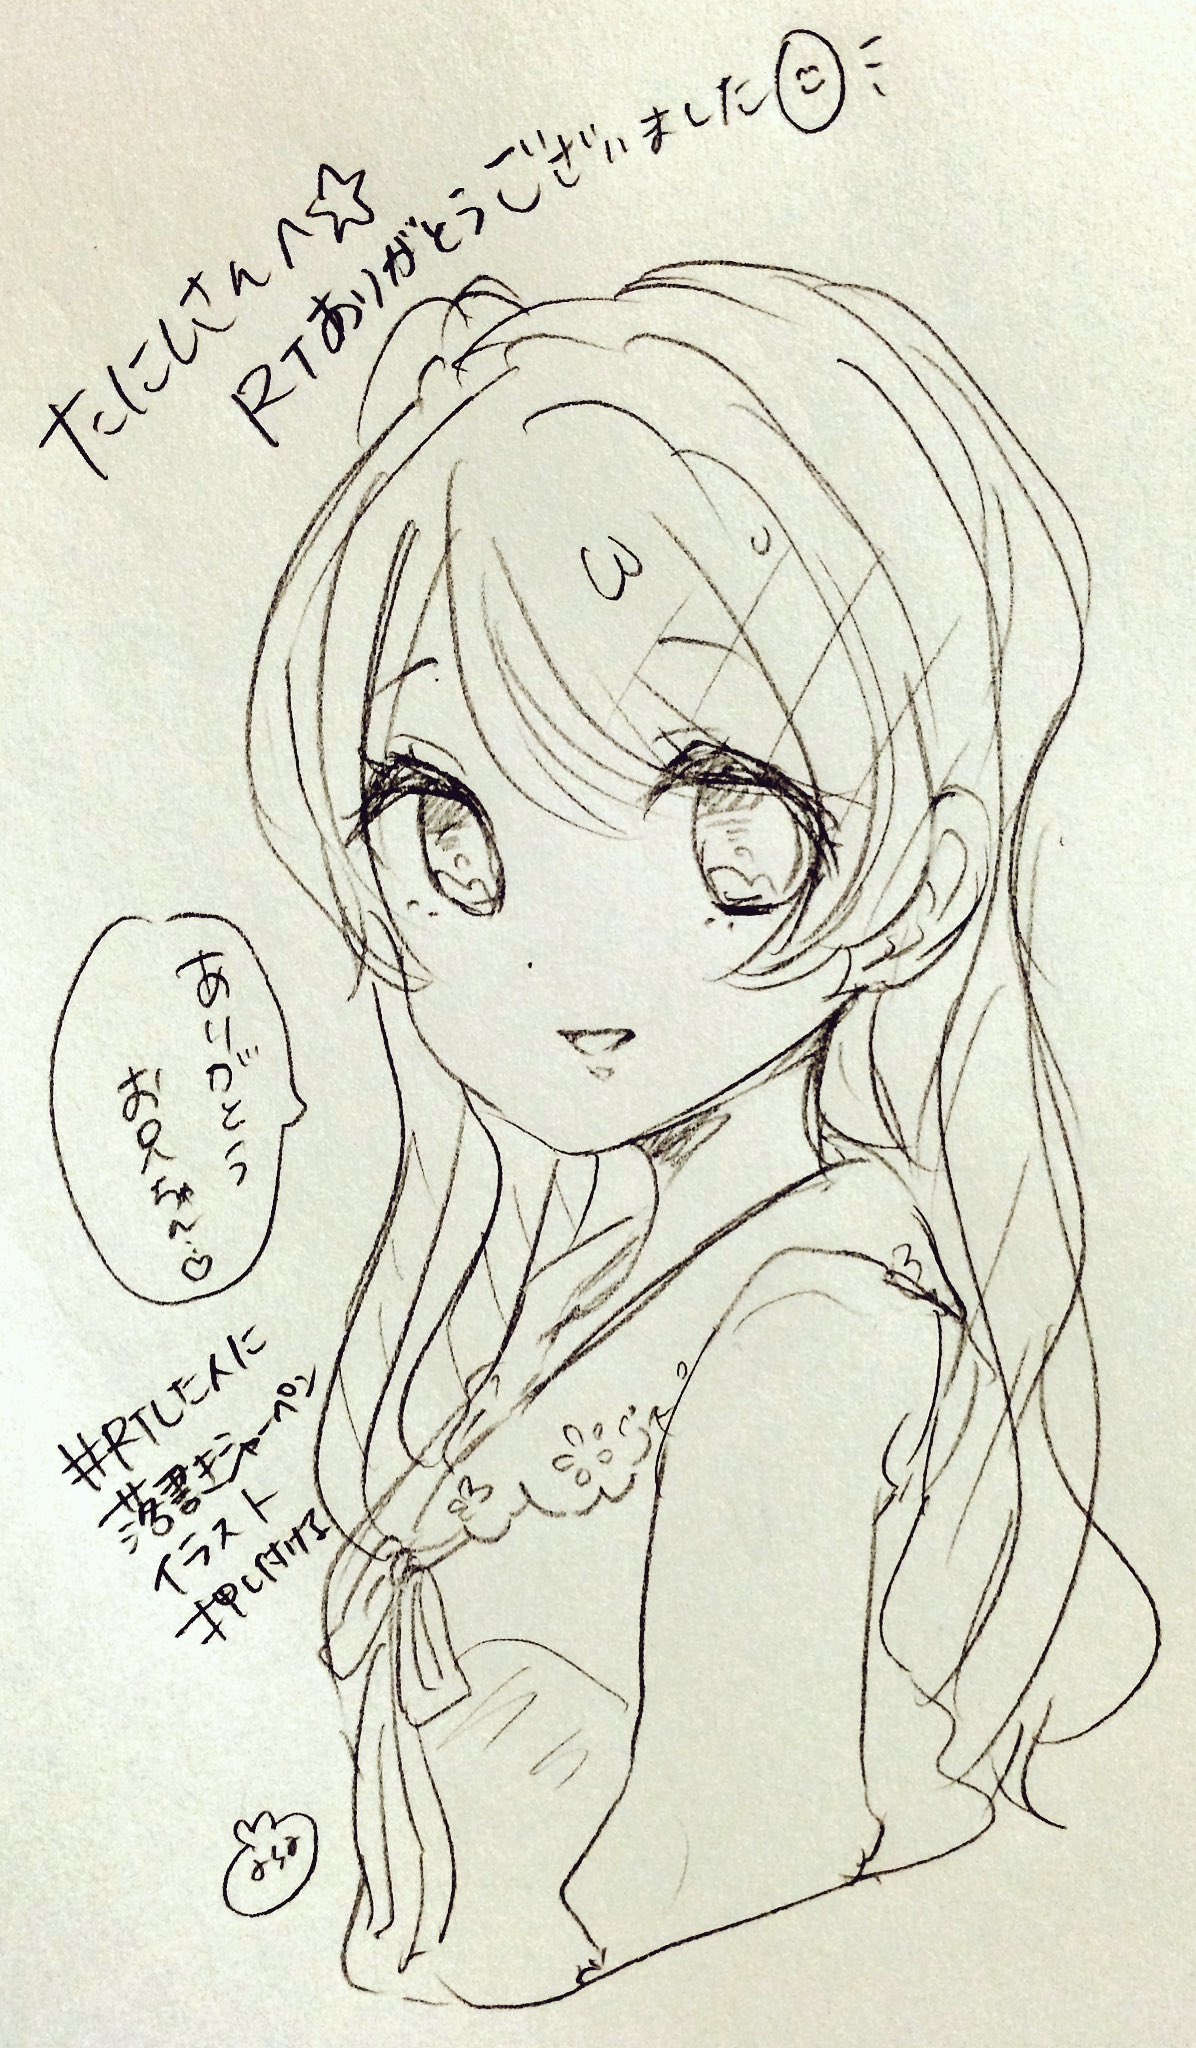 たにしさんへ☆
RTありがとうございました
ありがとう
お兄ちゃ〜ん♡
#RTした人に
落書きシャーペン
イラスト
押し付ける